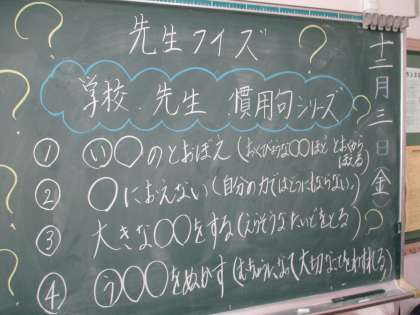 先生クイズ
学校・先生 慣用句シリーズ
十二月三日(金)
① い○のとおぼえ(おくびょうな○○ほど とおくからほえる)
② ○におえない(自分の力ではどうにもならない。)
③ 大きな○○をする(えらそうなたいどをとる)
④ う○○○をぬかす(むちゅうになって大切なことをわすれる)